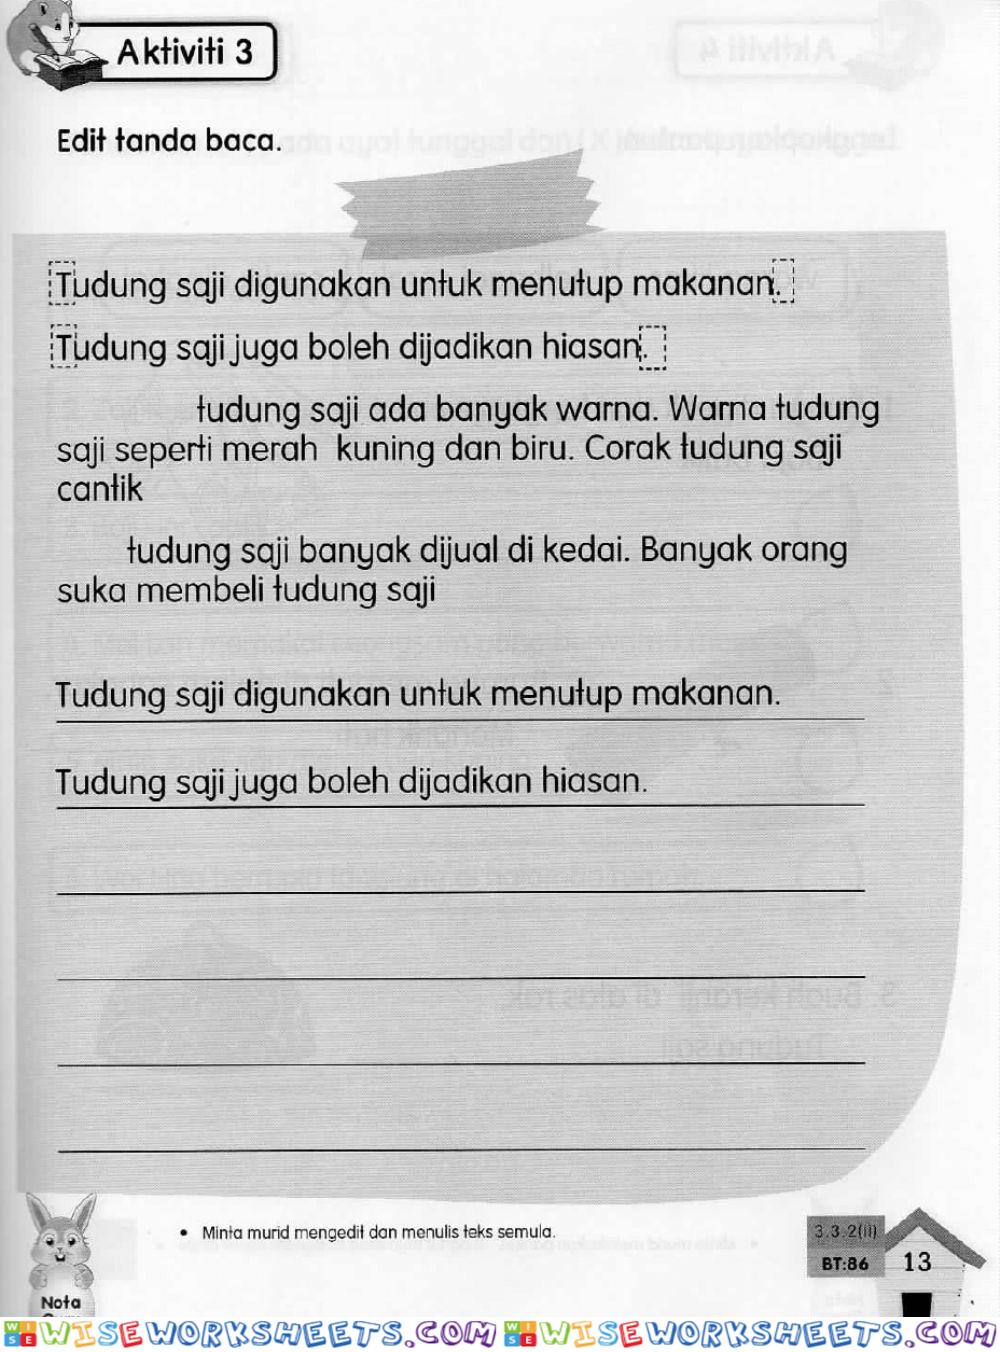 Aktiviti 3
Edit tanda baca.
Tudung saji digunakan untuk menutup makanan.
Tudung saji juga boleh dijadikan hiasan.
tudung saji ada banyak warna. Warna tudung
saji seperti merah kuning dan biru. Corak tudung saji
cantik
tudung saji banyak dijual di kedai. Banyak orang
suka membeli tudung saji
Tudung saji digunakan untuk menutup makanan.
Tudung saji juga boleh dijadikan hiasan.
• Minta murid mengedit dan menulis teks semula.
3.3.2(ii)
BT:86
13
Nota
WISEWORKSHEETS.COM WISEWORKSHEETS.COM